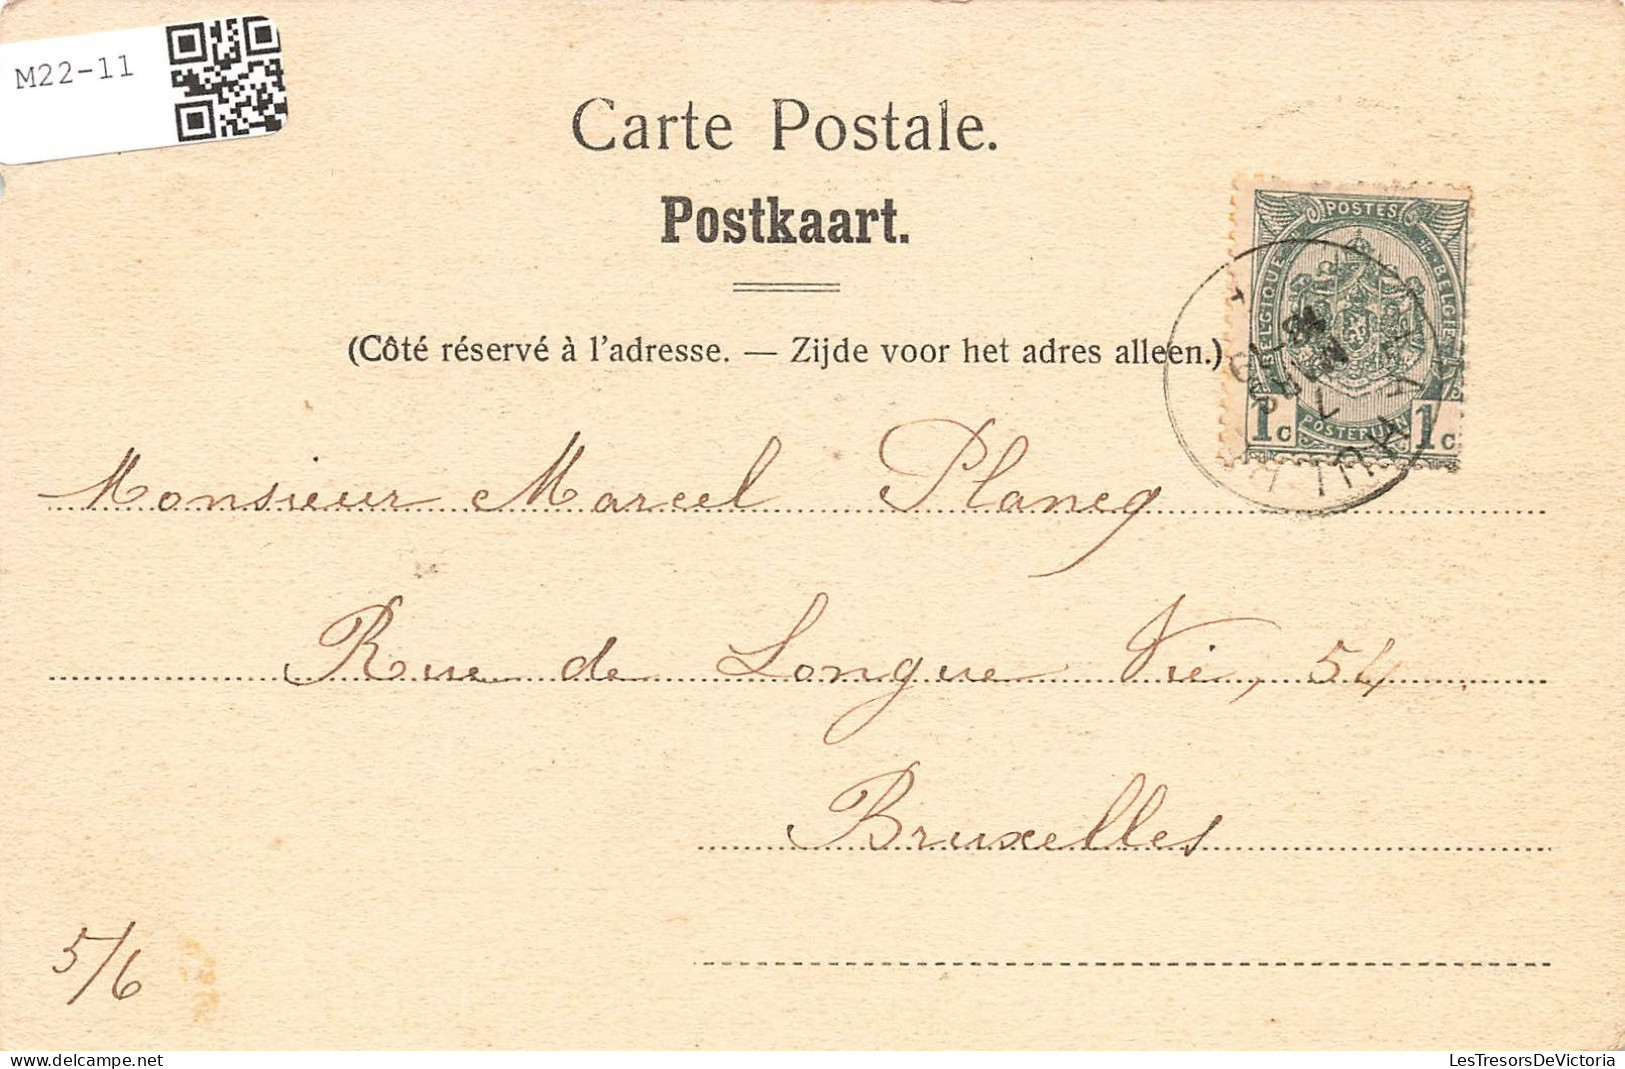 M22-11
Carte Postale.
Postkaart.
(Côté réservé à l'adresse. — Zijde voor het adres alleen.)
POSTES
BELGIQUE
BELGIË
1c
1c
Monsieur Marcel Plancq
Rue de Longue Vie, 54
Bruxelles
5/6
LesTresorsDeVictoria